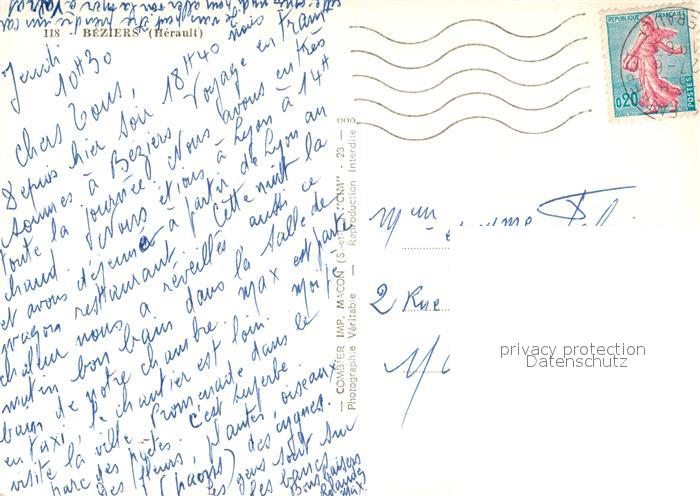 118 - BÉZIERS (Hérault)
Jeudi
10H30
Chers Tous,
Depuis hier soir 18H40 nous
sommes à Béziers. Voyage en train
toute la journée. Nous avons eu très
chaud. Nous étions à Lyon à 14H
et avons déjeuné à partir de Lyon au
wagon restaurant. Cette nuit la
chaleur nous a réveillés aussi ce
matin bon bain dans la salle de
bain de notre chambre. Max est parti
en taxi, le chantier est loin. Moi je
visite la ville. Promenade dans le
parc des poètes. C'est superbe
(des fleurs, plantes, oiseaux
(paons) des cygnes.
les gens sont sur
des bancs.
Bons baisers
Yolande
Max
— COMBIER IMP. MACON (S.-et-L.) "CIM" - 23 — 000
Photographie Véritable — Reproduction Interdite
REPUBLIQUE FRANÇAISE
0,20
POSTES
Mme
2 Rue
privacy protection
Datenschutz